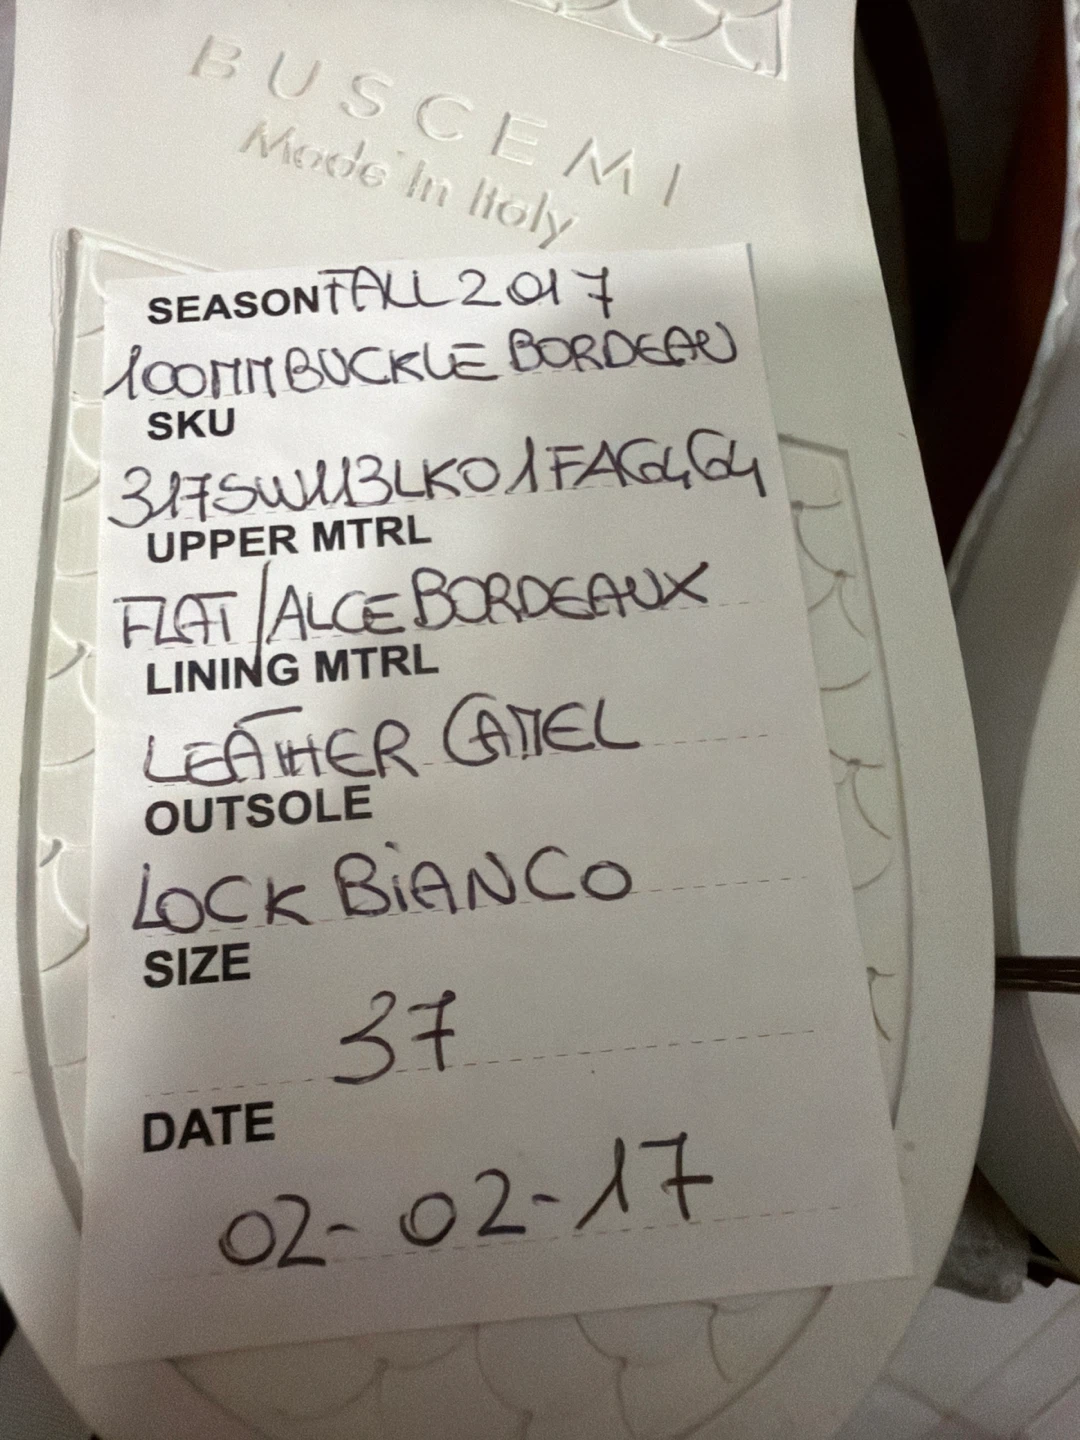 BUSCEMI
Made in Italy
SEASON FALL 2017
100MM BUCKLE BORDEAU
SKU
317SW113LK01FAG4G4
UPPER MTRL
FLAT/ALCE BORDEAUX
LINING MTRL
LEATHER CAMEL
OUTSOLE
LOCK BiANCO
SIZE
37
DATE
02-02-17